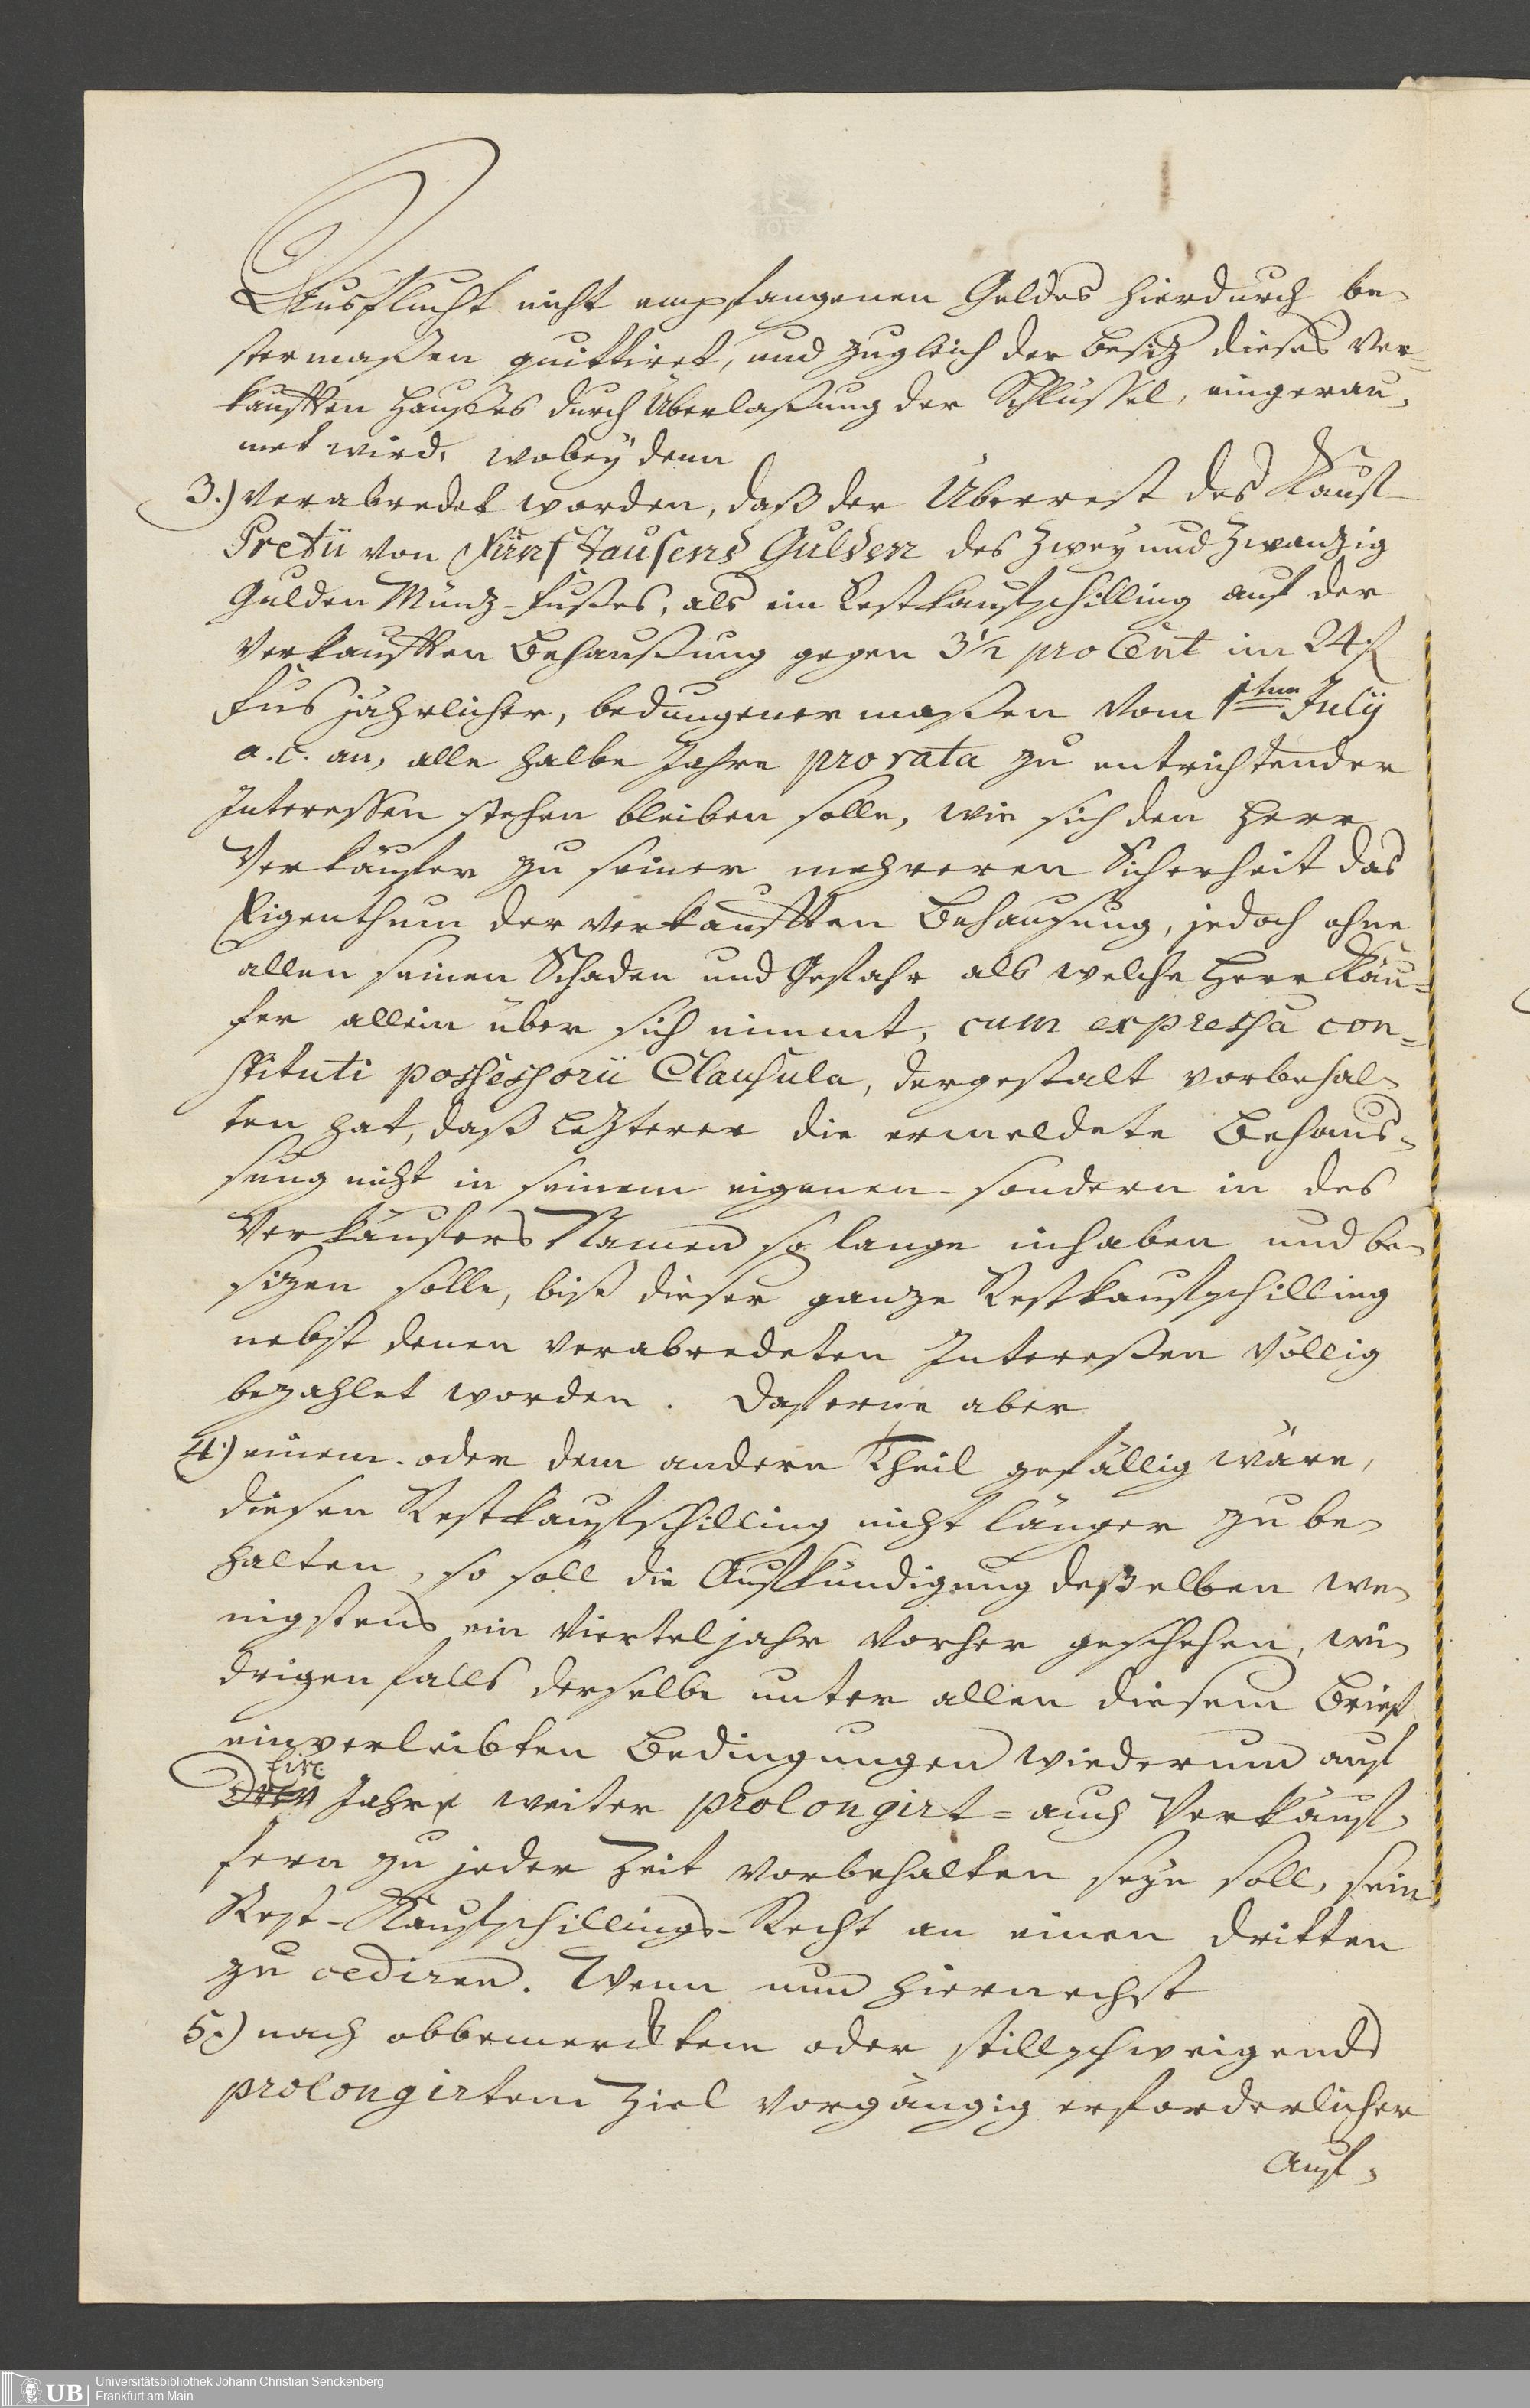 Ausflucht nicht empfangenen Geldes hierdurch be-
stermaßen quittiret, und zugleich der Besiz dieses ver-
kaufften Haußes durch Überlaßung der Schlüssel, eingerau-
met wird, wobey denn
3.) verabredet worden, daß der Überrest des Kauf-
Pretii von Fünf tausend Gulden des Zwey und Zwanzig
Gulden Münz-Fußes, als ein Restkaufschilling auf der
verkaufften Behaußung gegen 3½ pro Cent im 24 f
Fus jährlicher, bedungener maßen vom 1ten July
a. c. an, alle halbe Jahre pro rata zu entrichtender
Interessen stehen bleiben solle, wie sich den Herr
Verkäufer zu seiner mehreren Sicherheit das
Eigenthum der verkaufften Behausung, jedoch ohne
allen seinen Schaden und Gefahr als welche Herr Käu-
fer allein über sich nimmt, cum expressa con-
stituti possessorii Clausula, dergestalt vorbehal-
ten hat, daß Lezterer die ermeldete Behaus-
sung nicht in seinem eigenen- sondern in des
Verkäufers Namen so lange inhaben und be-
sizen solle, biß dieser ganze Restkaufschilling
nebst denen verabredeten Intereßen völlig
bezahlet worden. Daferne aber
4.) einem- oder dem andern Theil gefällig wäre,
diesen Restkaufschilling nicht länger zu be-
halten, so soll die Aufkündigung deßelben we-
nigstens ein Vierteljahr vorher geschehen, wi-
drigenfalls derselbe unter allen diesem Brief
einverleibten Bedingungen wiederum auf
Ein
Drey Jahre weiter prolongirt- auch Verkäuf-
fern zu jeder Zeit vorbehalten seyn soll, sein
Rest-Kaufschillings-Recht an einen dritten
zu cediren. Wenn nun hiernechst
5.) nach obbemercktem oder stillschweigend
prolongirtem Ziel vorgängig erforderlicher
Auf-
UB
Universitätsbibliothek Johann Christian Senckenberg
Frankfurt am Main